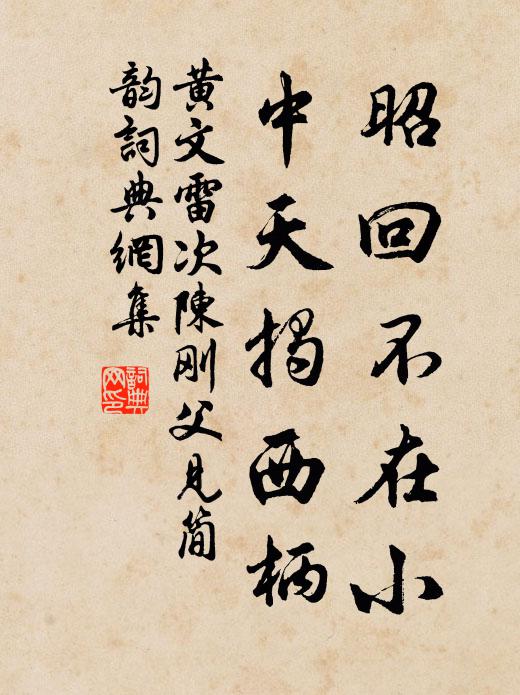 昭回不在小
中天揭西柄
黄文雷次陳刚父見簡
韵詞典網集
詞典網印